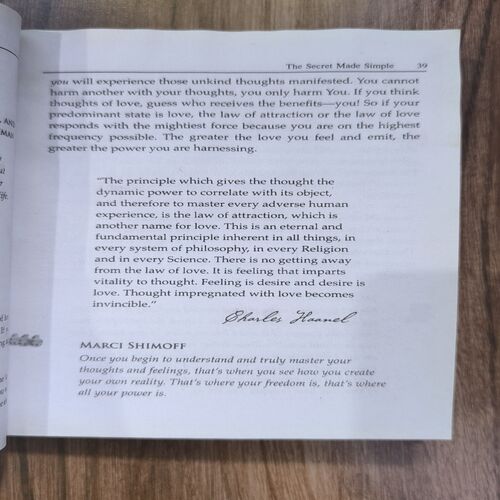 The Secret Made Simple 39
you will experience those unkind thoughts manifested. You cannot
harm another with your thoughts, you only harm You. If you think
thoughts of love, guess who receives the benefits—you! So if your
predominant state is love, the law of attraction or the law of love
responds with the mightiest force because you are on the highest
frequency possible. The greater the love you feel and emit, the
greater the power you are harnessing.
"The principle which gives the thought the
dynamic power to correlate with its object,
and therefore to master every adverse human
experience, is the law of attraction, which is
another name for love. This is an eternal and
fundamental principle inherent in all things, in
every system of philosophy, in every Religion
and in every Science. There is no getting away
from the law of love. It is feeling that imparts
vitality to thought. Feeling is desire and desire is
love. Thought impregnated with love becomes
invincible."
Charles Haanel
MARCI SHIMOFF
Once you begin to understand and truly master your
thoughts and feelings, that's when you see how you create
your own reality. That's where your freedom is, that's where
all your power is.